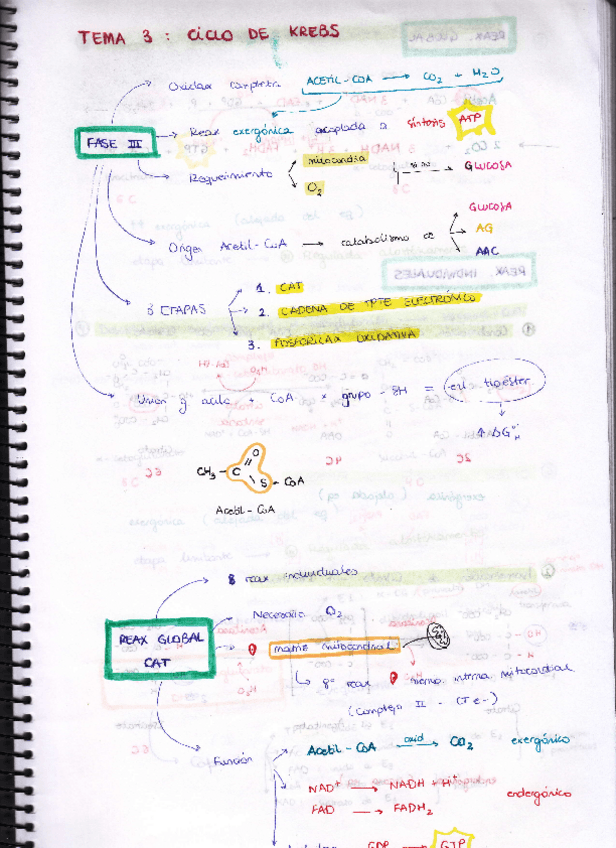 TEMA 3: CICLO DE KREBS
Oxidax completa ACETIL-COA → CO2 + H2O
FASE III
Reax exergónica acoplada a síntesis ATP
Requerimiento
mitocondria
O2
GLUCOSA
Origen Acetil-CoA → catabolismo de
GLUCOSA
AG
AAC
3 ETAPAS
1. CAT
2. CADENA DE TPTE ELECTRÓNICO
3. FOSFORILAX OXIDATIVA
Unión g acilo + CoA x grupo -SH = enl. tioéster
↑ΔG°H
CH3 - C
O
S - CoA
Acetil-CoA
8 reax individuales
Necesario O2
REAX GLOBAL
CAT
matriz mitocondrial
reax memb. interna mitocondrial
(Complejo II - CTe-)
Función
Acetil-CoA oxid → CO2 exergónico
NAD+ → NADH + H+
endergónico
FAD → FADH2
GDP → GTP